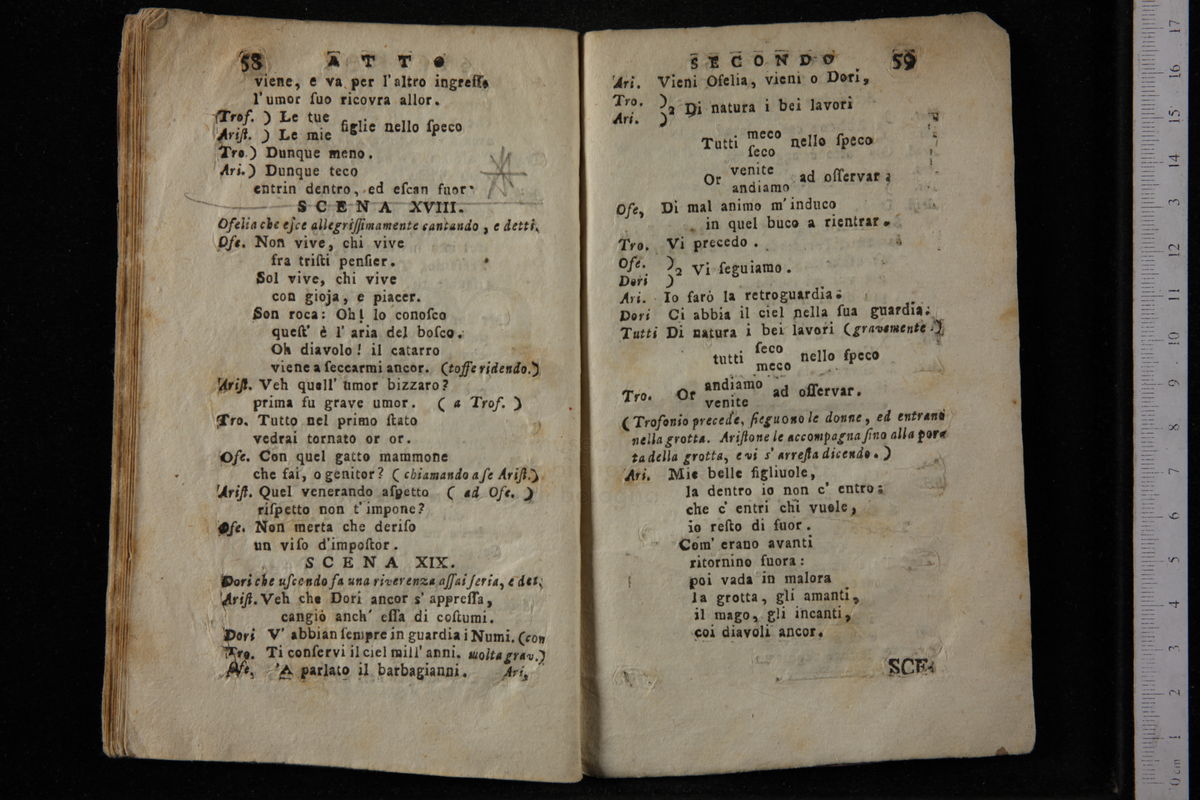 58 ATTO
viene, e va per l'altro ingresso
l'umor ſuo ricovra allor.
Trof. ) Le tue
figlie nello ſpeco
Ariſt. ) Le mie
Tro.) Dunque meno.
Ari.) Dunque teco
entrin dentro, ed eſcan fuor.
SCENA XVIII.
Ofelia che eſce allegriſſimamente cantando, e detti.
Ofe. Non vive, chi vive
fra triſti penſier.
Sol vive, chi vive
con gioja, e piacer.
Son roca: Oh! lo conoſco
queſt' è l'aria del boſco.
Oh diavolo! il catarro
viene a ſeccarmi ancor. (toſſe ridendo.)
Ariſt. Veh quell' umor bizzaro?
prima fu grave umor. ( a Trof. )
Tro. Tutto nel primo ſtato
vedrai tornato or or.
Ofe. Con quel gatto mammone
che fai, o genitor? ( chiamando a ſe Ariſt.)
Ariſt. Quel venerando aſpetto ( ad Ofe. )
riſpetto non t'impone?
Ofe. Non merta che deriſo
un viſo d'impoſtor.
SCENA XIX.
Dori che uſcendo fa una riverenza aſſai ſeria, e det.
Ariſt. Veh che Dori ancor s' appreſſa,
cangiò anch' eſſa di coſtumi.
Dori V' abbian ſempre in guardia i Numi. (con
Tro. Ti conſervi il ciel mill' anni. molta grav.)
Ofe, 'A parlato il barbagianni. Ari,
SECONDO. 59
Ari. Vieni Ofelia, vieni o Dori,
Tro. )
2 Di natura i bei lavori
Ari. )
meco
Tutti nello ſpeco
ſeco
venite
Or ad oſſervar:
andiamo
Ofe, Di mal animo m'induco
in quel buco a rientrar.
Tro. Vi precedo.
Ofe. )
2 Vi ſeguiamo.
Dori )
Ari. Io farò la retroguardia:
Dori Ci abbia il ciel nella ſua guardia:
Tutti Di natura i bei lavori (gravemente.)
ſeco
tutti nello ſpeco
meco
andiamo
Tro. Or ad oſſervar.
venite
(Trofonio precede, ſieguono le donne, ed entrano
nella grotta. Ariſtone le accompagna fino alla por-
ta della grotta, e vi s' arreſta dicendo.)
Ari. Mie belle figliuole,
la dentro io non c' entro:
che c' entri chi vuole,
io reſto di fuor.
Com' erano avanti
ritornino fuora:
poi vada in malora
la grotta, gli amanti,
il mago, gli incanti,
coi diavoli ancor.
SCE-
0 cm 1 2 3 4 5 6 7 8 9 10 11 12 13 14 15 16 17